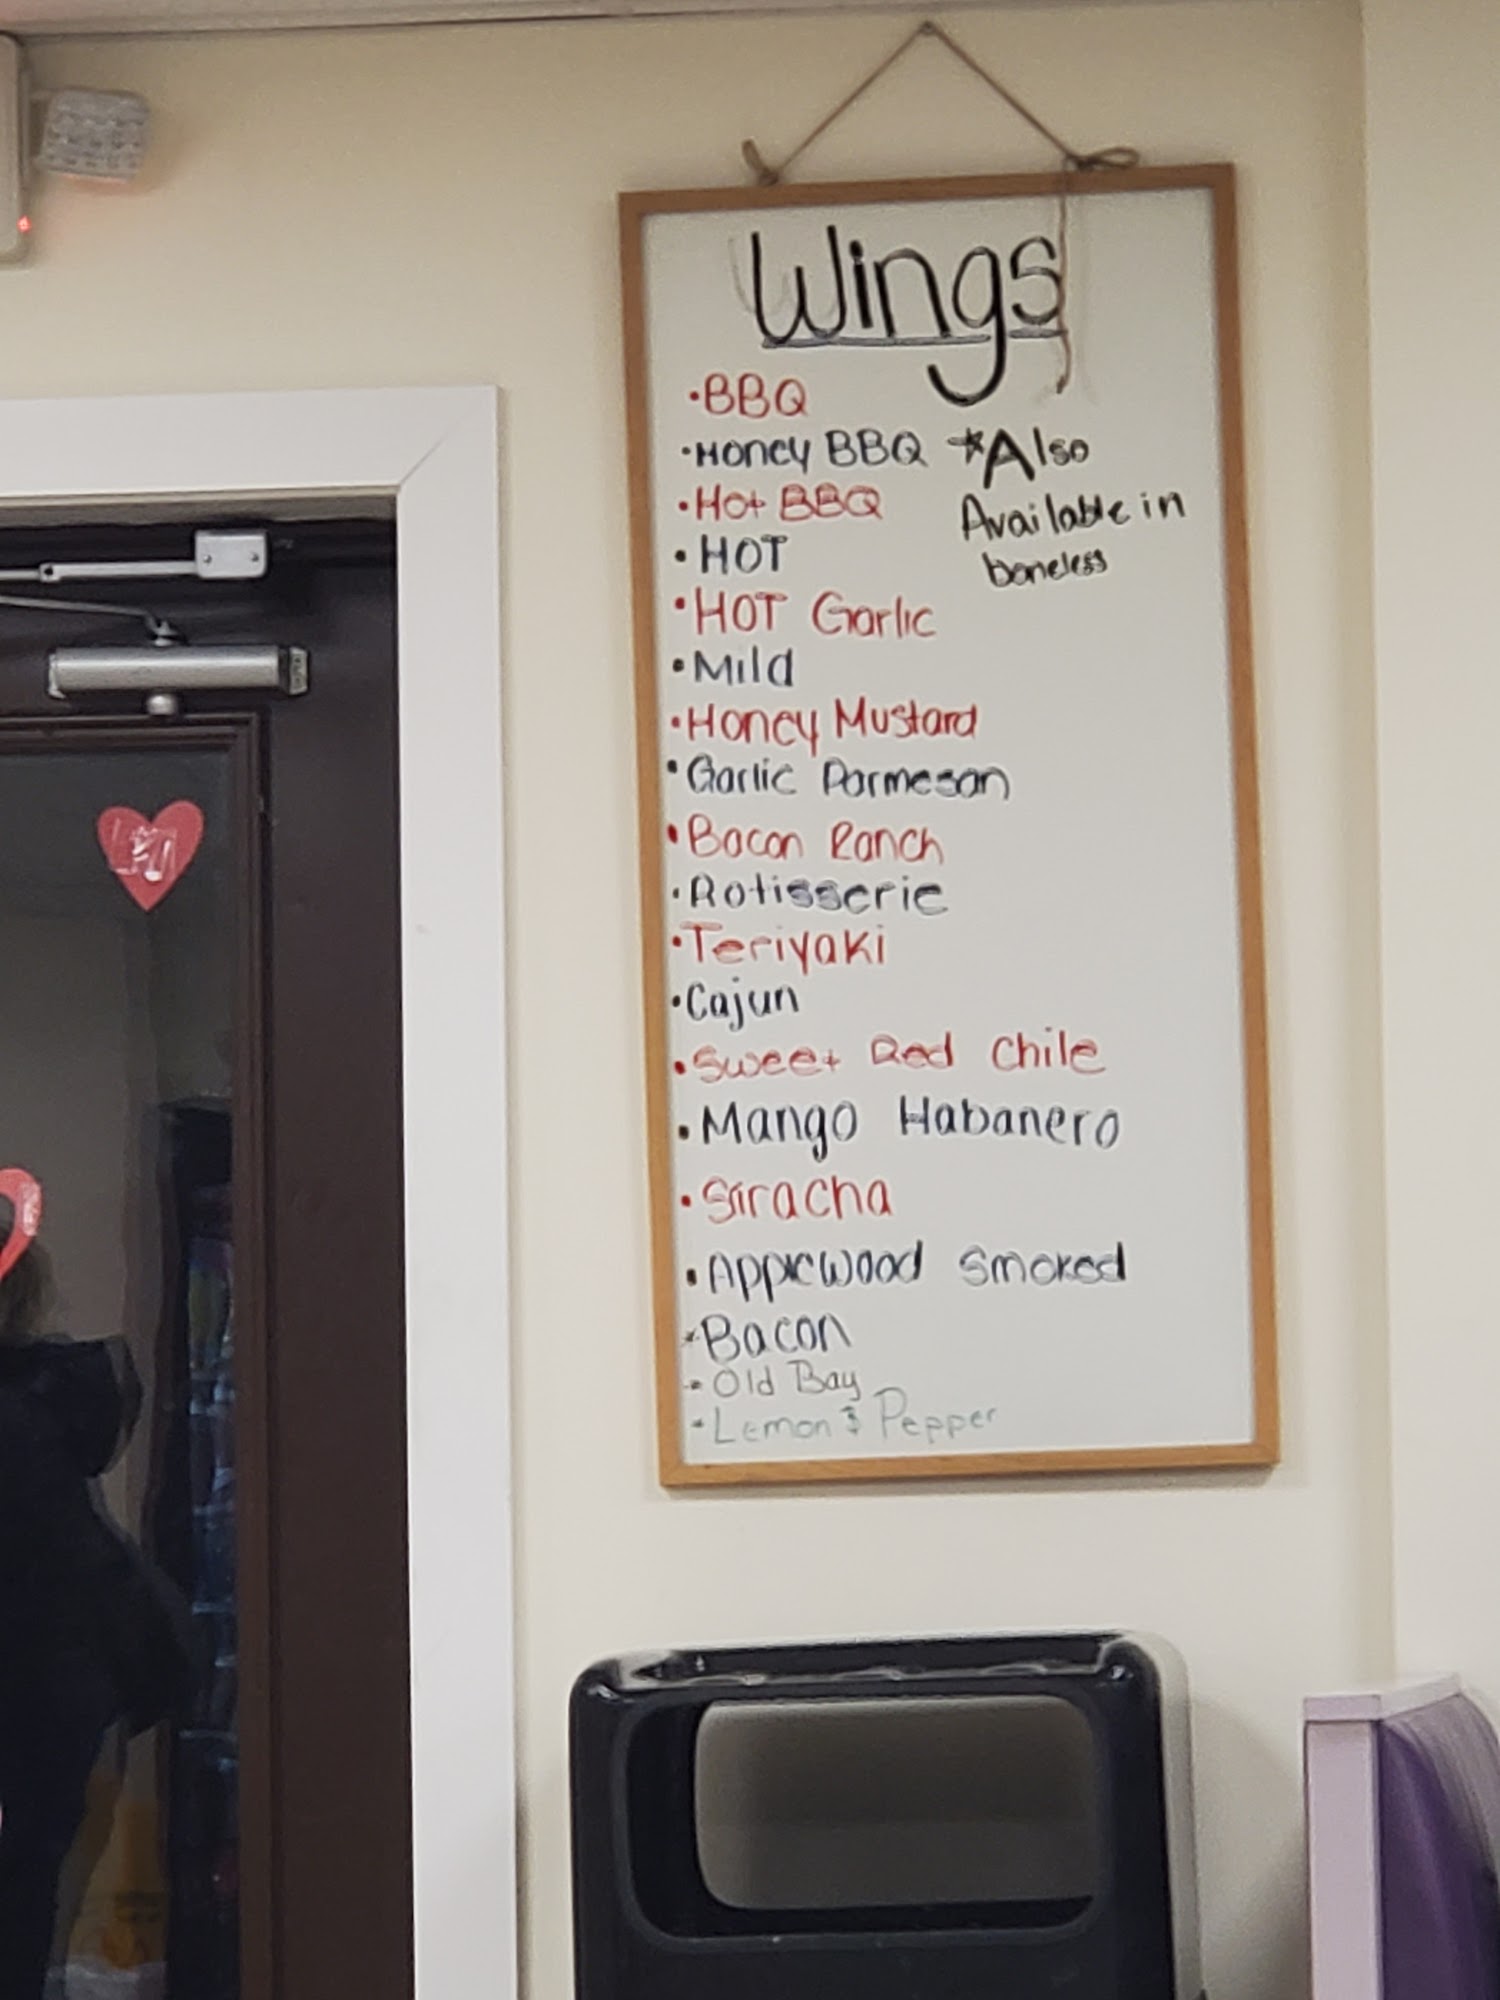 Wings
•BBQ
•Honey BBQ *Also
•Hot BBQ Available in
•HOT boneless
•HOT Garlic
•Mild
•Honey Mustard
•Garlic Parmesan
•Bacon Ranch
•Rotisserie
•Teriyaki
•Cajun
•Sweet Red Chile
•Mango Habanero
•Sriracha
•Applewood Smoked
*Bacon
•Old Bay
•Lemon & Pepper